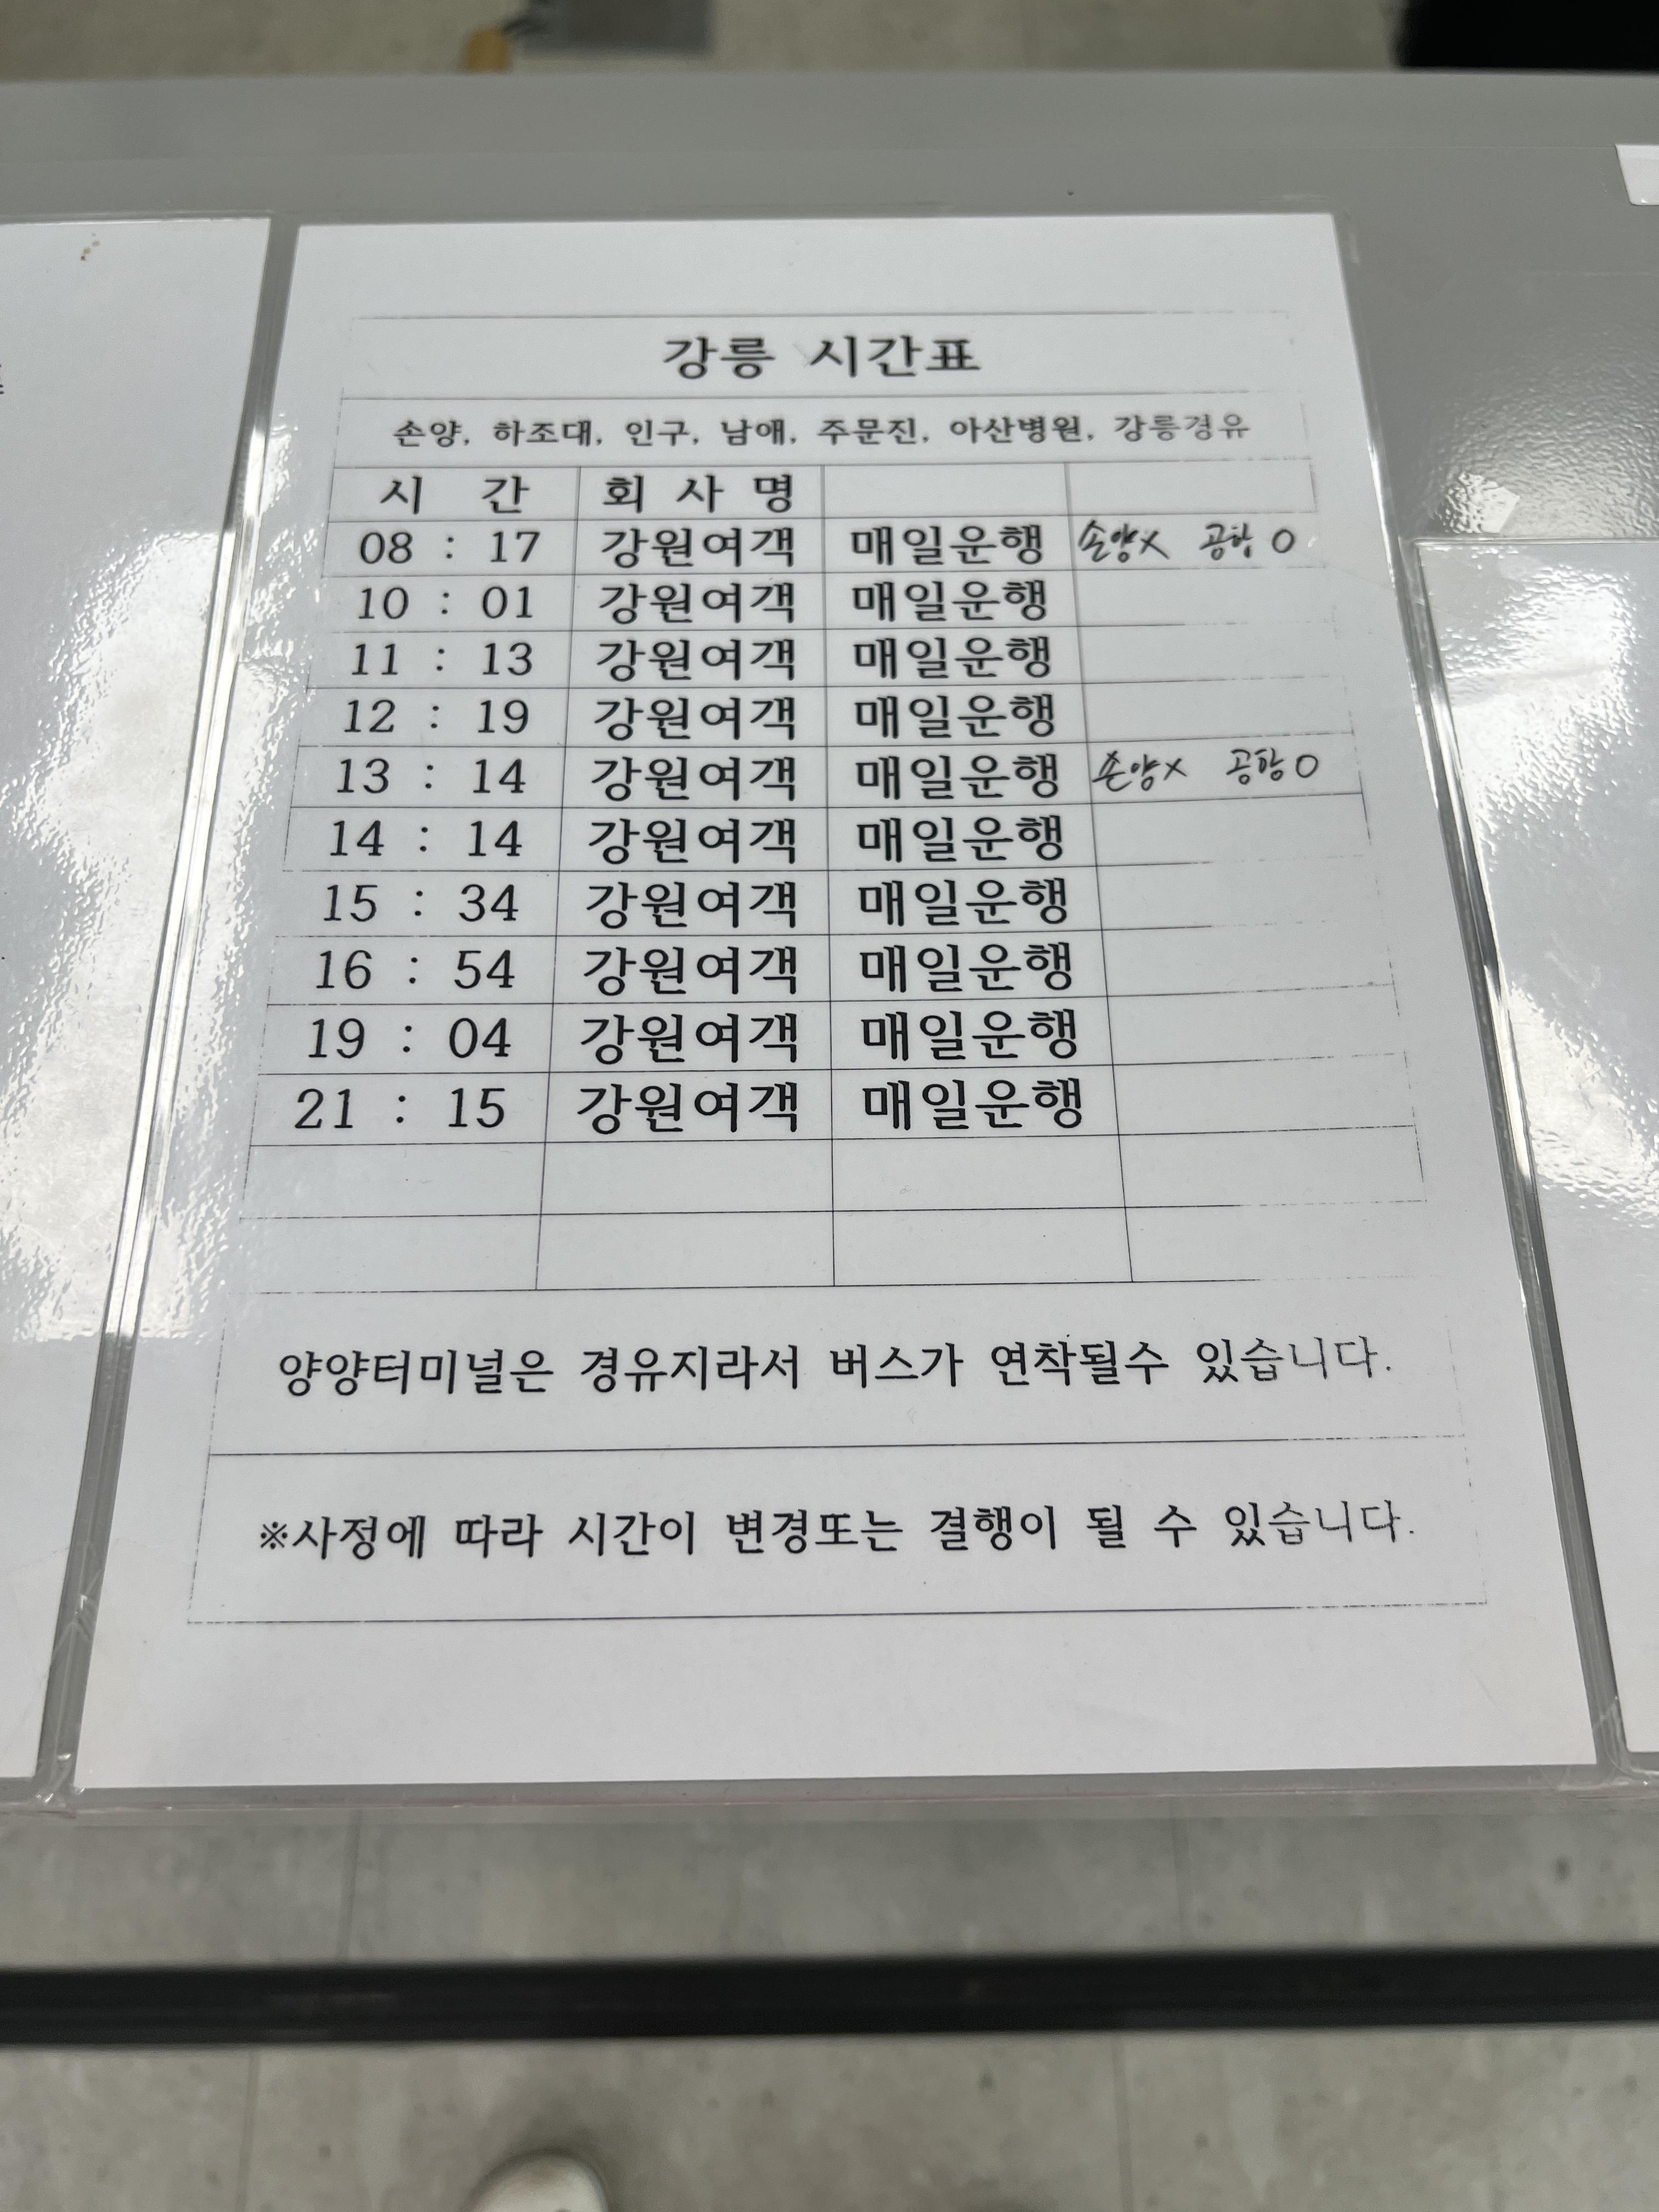 강릉 시간표
손양, 하조대, 인구, 남애, 주문진, 아산병원, 강릉경유
시 간 회 사 명
08 : 17 강원여객 매일운행 손양X 공항O
10 : 01 강원여객 매일운행
11 : 13 강원여객 매일운행
12 : 19 강원여객 매일운행
13 : 14 강원여객 매일운행 손양X 공항O
14 : 14 강원여객 매일운행
15 : 34 강원여객 매일운행
16 : 54 강원여객 매일운행
19 : 04 강원여객 매일운행
21 : 15 강원여객 매일운행
양양터미널은 경유지라서 버스가 연착될수 있습니다.
※사정에 따라 시간이 변경또는 결행이 될 수 있습니다.